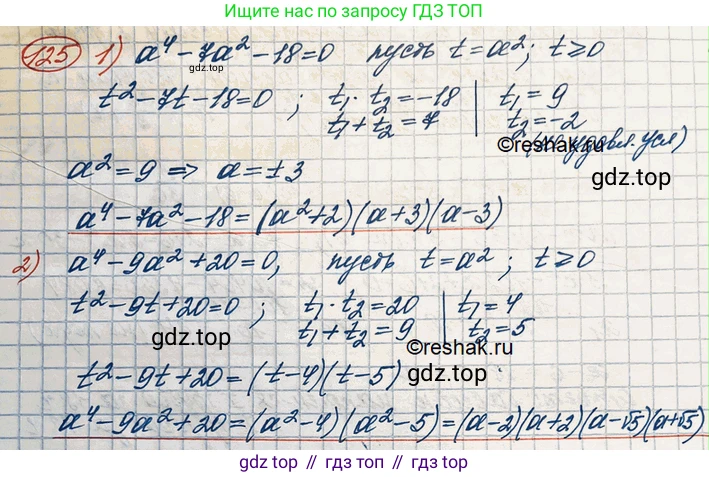 Ищите нас по запросу ГДЗ ТОП
125 1) a⁴ - 7a² - 18 = 0 пусть t = a²; t ≥ 0
gdz.top
t² - 7t - 18 = 0 ; t₁ · t₂ = -18 | t₁ = 9
t₁ + t₂ = 7 | t₂ = -2
(не удовл. усл)
©reshak.ru
a² = 9 ⇒ a = ±3
gdz.top
a⁴ - 7a² - 18 = (a² + 2)(a + 3)(a - 3)
2) a⁴ - 9a² + 20 = 0, пусть t = a² ; t ≥ 0
t² - 9t + 20 = 0 ; t₁ · t₂ = 20 | t₁ = 4
t₁ + t₂ = 9 | t₂ = 5
gdz.top
©reshak.ru
t² - 9t + 20 = (t - 4)(t - 5)
gdz.top
a⁴ - 9a² + 20 = (a² - 4)(a² - 5) = (a - 2)(a + 2)(a - √5)(a + √5)
gdz top // гдз топ // gdz top